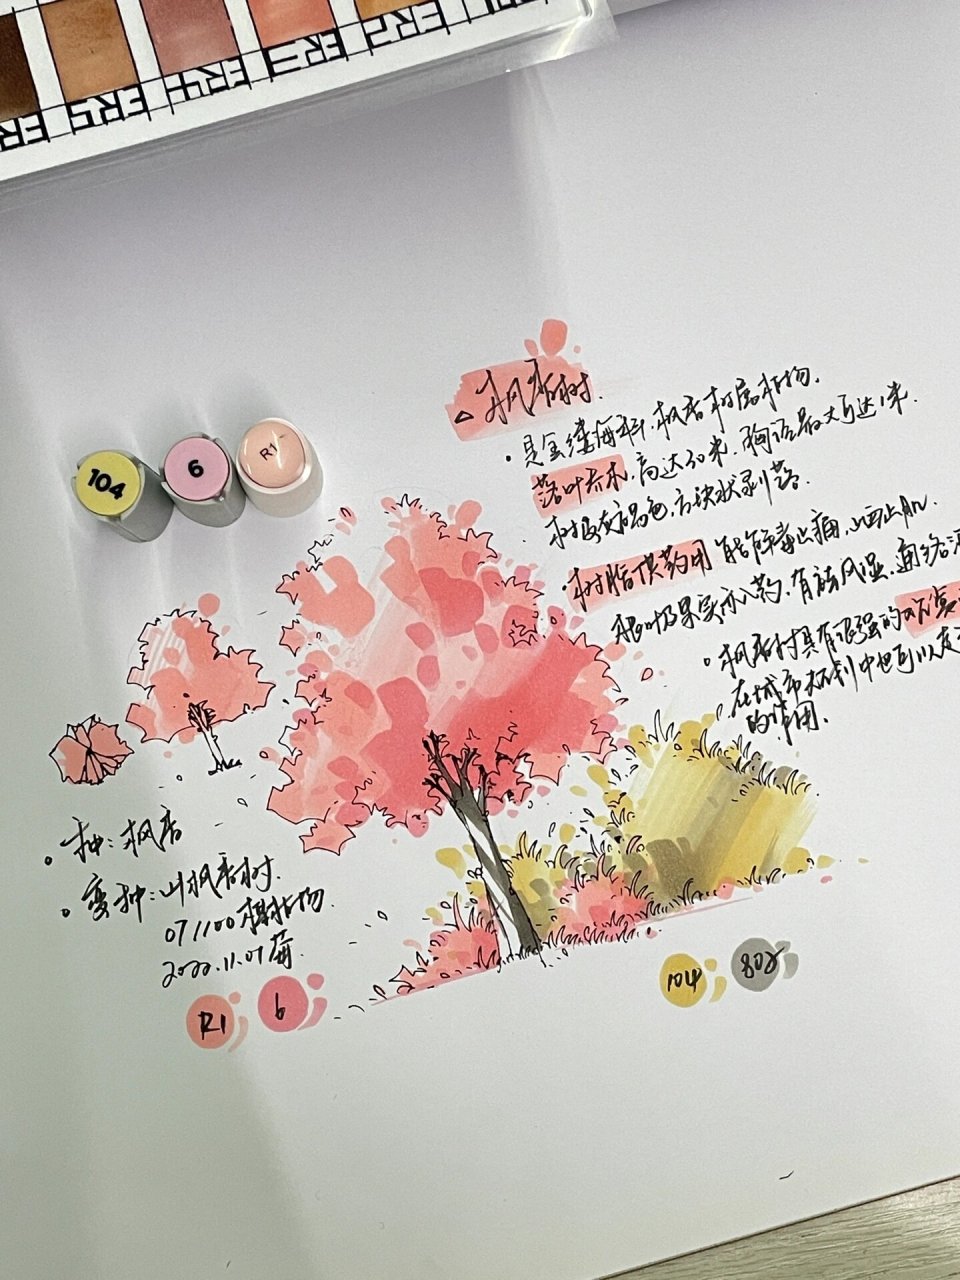 104
6
R1
△ 枫香树.
· 是金缕梅科,枫香树属植物.
落叶乔木,高达30米,胸径最大可达1米.
树皮灰褐色,方块状剥落.
· 树脂供药用 能解毒止痛,止血止肌.
根叶及果实亦入药,有祛风湿,通络活
· 枫香树具有很强的
在城市 中也可以
的作用.
· 种:枫香
· 变种:山枫香树.
071100 植物.
2022.11.07
R1
6
104
802